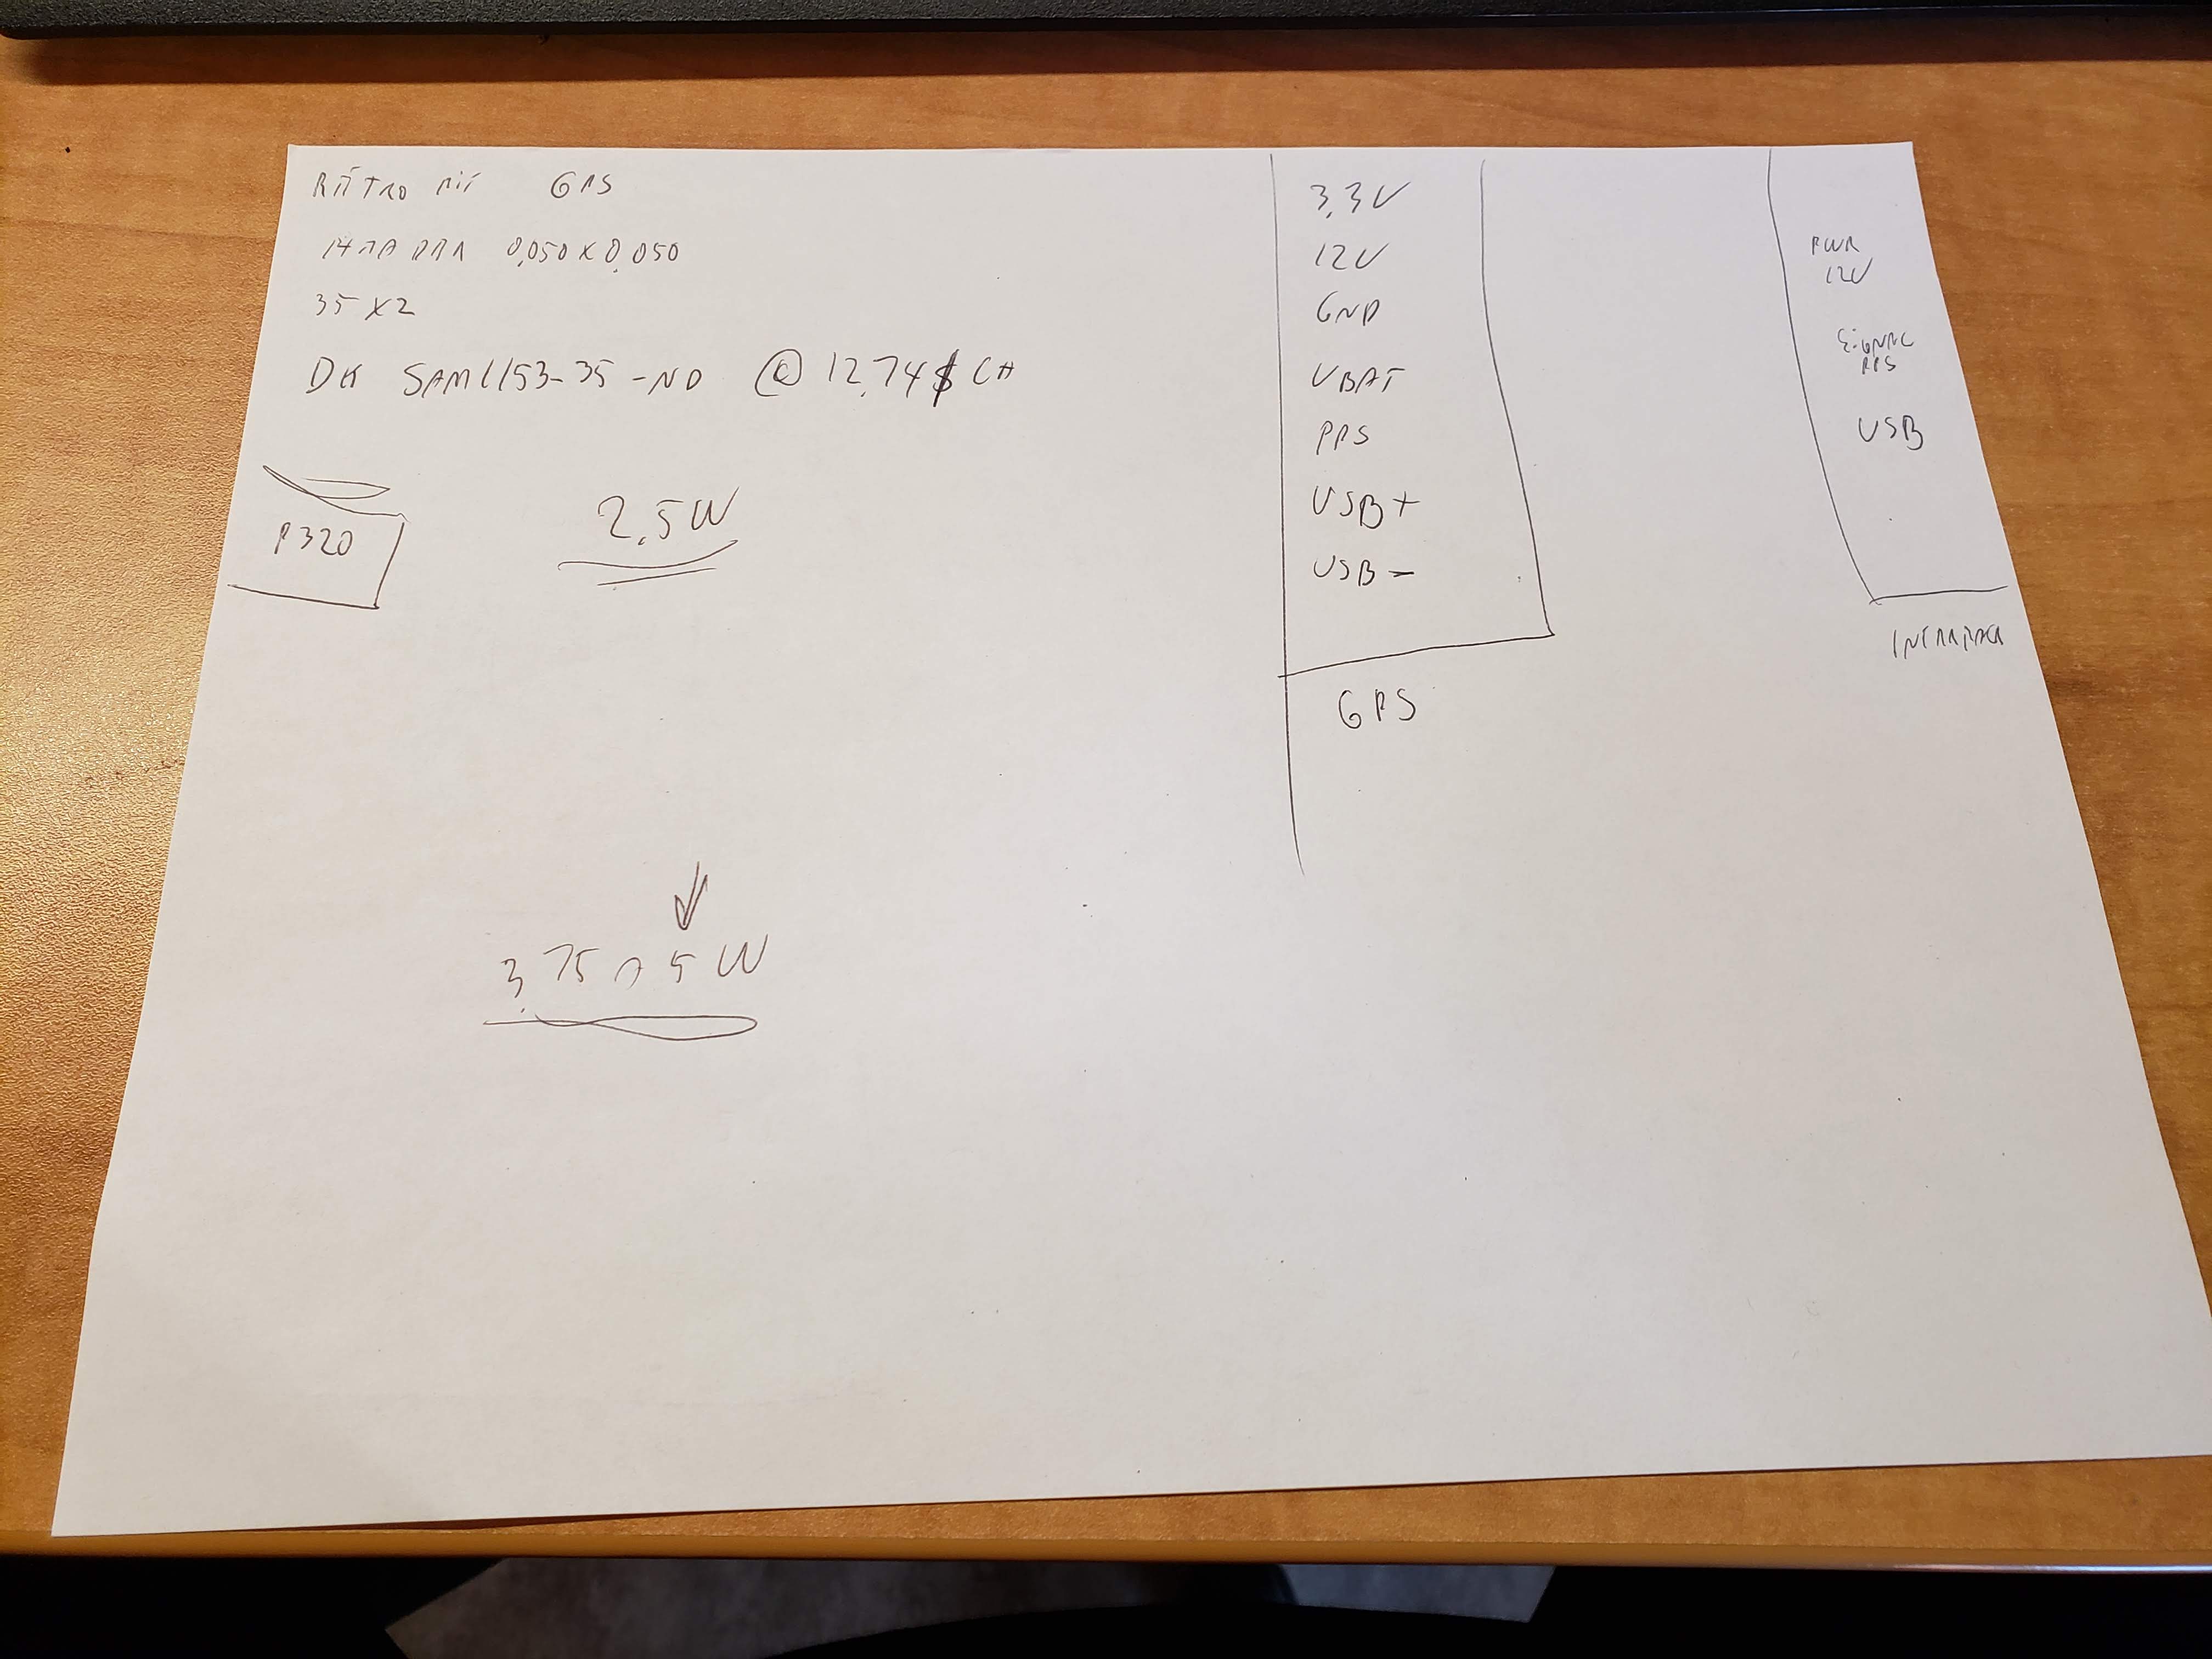 RÉTRO FIT GPS
0,050 X 0,050
35 X 2
DK SAM1153-35-ND @ 12,74$ CH
P320
2,5W
3,75 A 5W
3,3V
12V
GND
VBAT
PPS
USB+
USB-
GPS
PWR
12V
SIGNAL
PPS
USB
INTERFACE